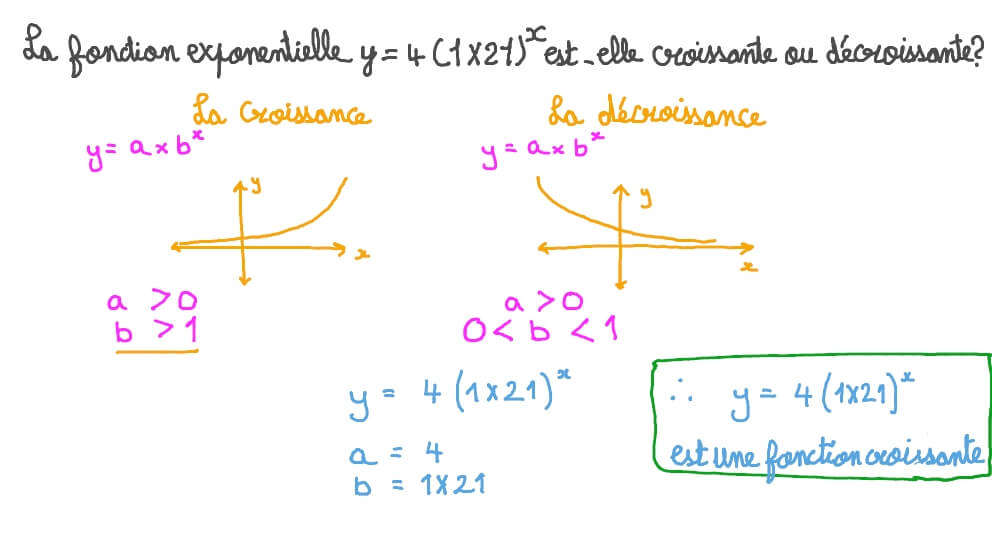 La fonction exponentielle y = 4 (1×21)^x est-elle croissante ou décroissante?
La croissance
La décroissance
y = a × b^x
y = a × b^x
y
x
y
x
a > 0
b > 1
a > 0
0 < b < 1
y = 4 (1×21)^x
a = 4
b = 1×21
∴ y = 4 (1×21)^x
est une fonction croissante